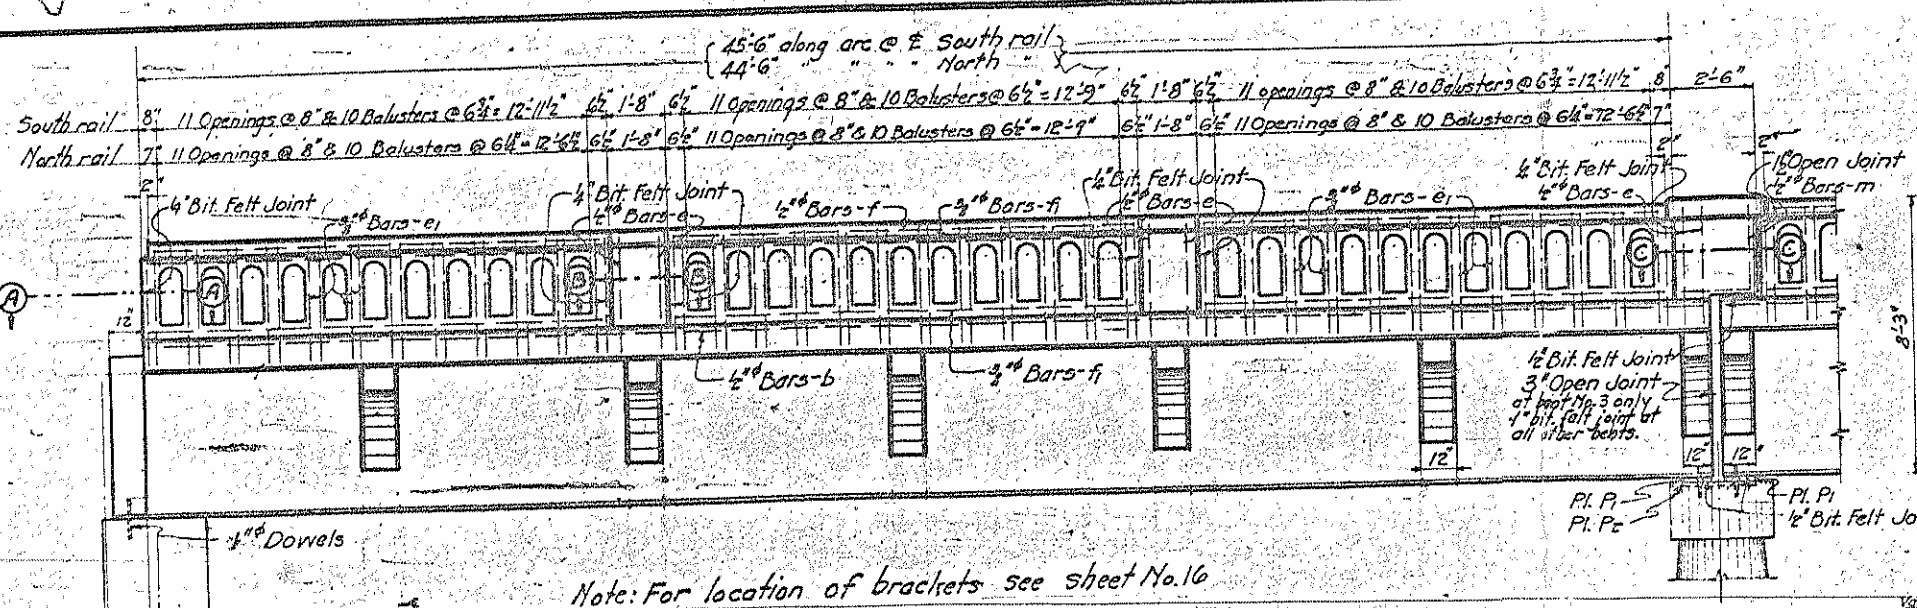 45'-6" along arc @ ℄ South rail
44'-6" " " " " North "
South rail 8" 11 Openings @ 8" & 10 Balusters @ 6¾" = 12'-11½" 6½" 1'-8" 6½" 11 Openings @ 8" & 10 Balusters @ 6½" = 12'-9" 6½" 1'-8" 6½" 11 openings @ 8" & 10 Balusters @ 6¾" = 12'-11½" 8" 2'-6"
North rail 7" 11 Openings @ 8" & 10 Balusters @ 6¼" = 12'-6½" 6½" 1'-8" 6½" 11 Openings @ 8" & 10 Balusters @ 6½" = 12'-9" 6½" 1'-8" 6½" 11 Openings @ 8" & 10 Balusters @ 6¼" = 12'-6½" 7"
2" 2" 2"
Bit. Felt Joint
Bars-e₁
Bit. Felt Joint
½"ᶲ Bars-e
½"ᶲ Bars-f
Bars-f₁
½" Bit. Felt Joint
½"ᶲ Bars-e
Bars-e₁
Bit. Felt Joint
½"ᶲ Bars-e
Open Joint
½"ᶲ Bars-m
A A B B C C
12"
8'-3"
½"ᶲ Bars-b
Bars-f₁
12"
½" Bit. Felt Joint
3" Open Joint
at bent No. 3 only
1" bit. felt joint at
all other bents.
12" 12"
Pl. P₁
Pl. P₂
Pl. P₁
½" Bit. Felt Jo
1"ᶲ Dowels
Note: For location of brackets see sheet No. 16